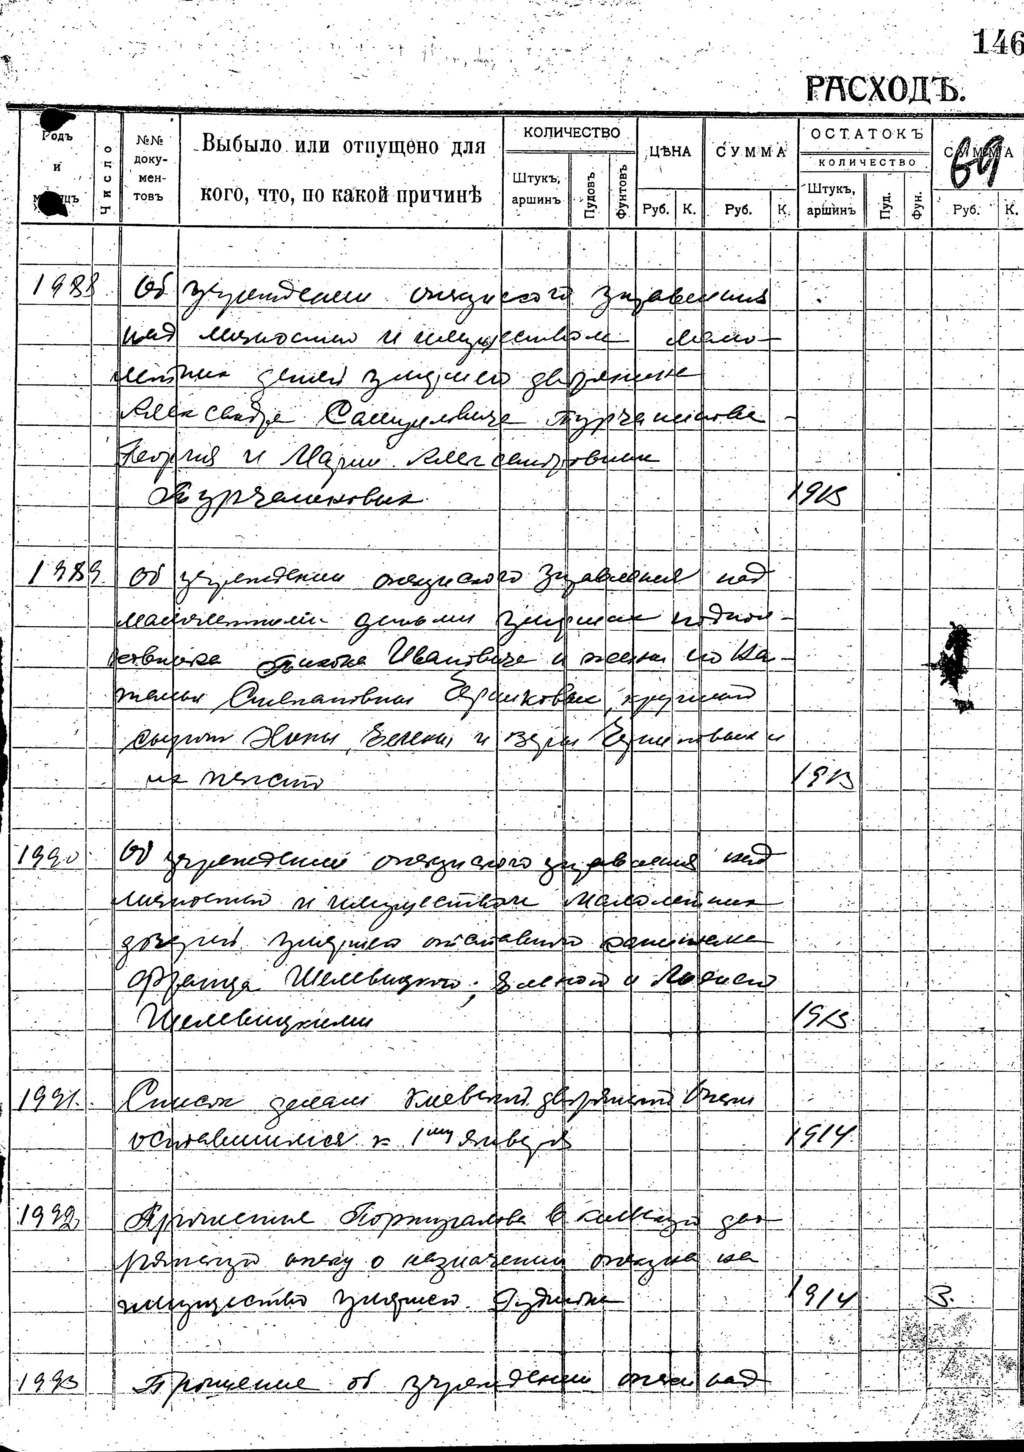 146
РАСХОДЪ.
Годъ и мѣсяцъ
Число
№№ документовъ
Выбыло или отпущено для кого, что, по какой причинѣ
КОЛИЧЕСТВО
Штукъ, аршинъ
Пудовъ
Фунтовъ
ЦѢНА
Руб. К.
СУММА
Руб. К.
ОСТАТОКЪ
КОЛИЧЕСТВО
Штукъ, аршинъ
Пуд.
Фун.
СУММА
Руб. К.
69
1988 Об учреждении опекунского управления
над личностью и имуществом мало-
летних детей умершего дворянина
Александра Самуиловича Турчанинова -
Георгия и Марии Александровных
Турчаниновых 1913
1989. Об учреждении опекунского управления над
малолетними детьми умерших подпол-
ковника Ивановича и жены его На-
талии Степановны круглых
сирот Нины, Елены и Веры
1913
1990 Об учреждении опекунского управления над
личностью и имуществом малолетних
дочерей умершего отставного капитана
Франца Шелевицкого; Еленой и
Шелевицкими 1913
1991. Список делам Киевской дворянской опеки
оставшимся к 1му января 1914
1992 Прошение Португалова в Киевскую дво-
рянскую опеку о назначении опекуна на
имущество умершего 1914 3.
1993 Прошение об учреждении опеки над